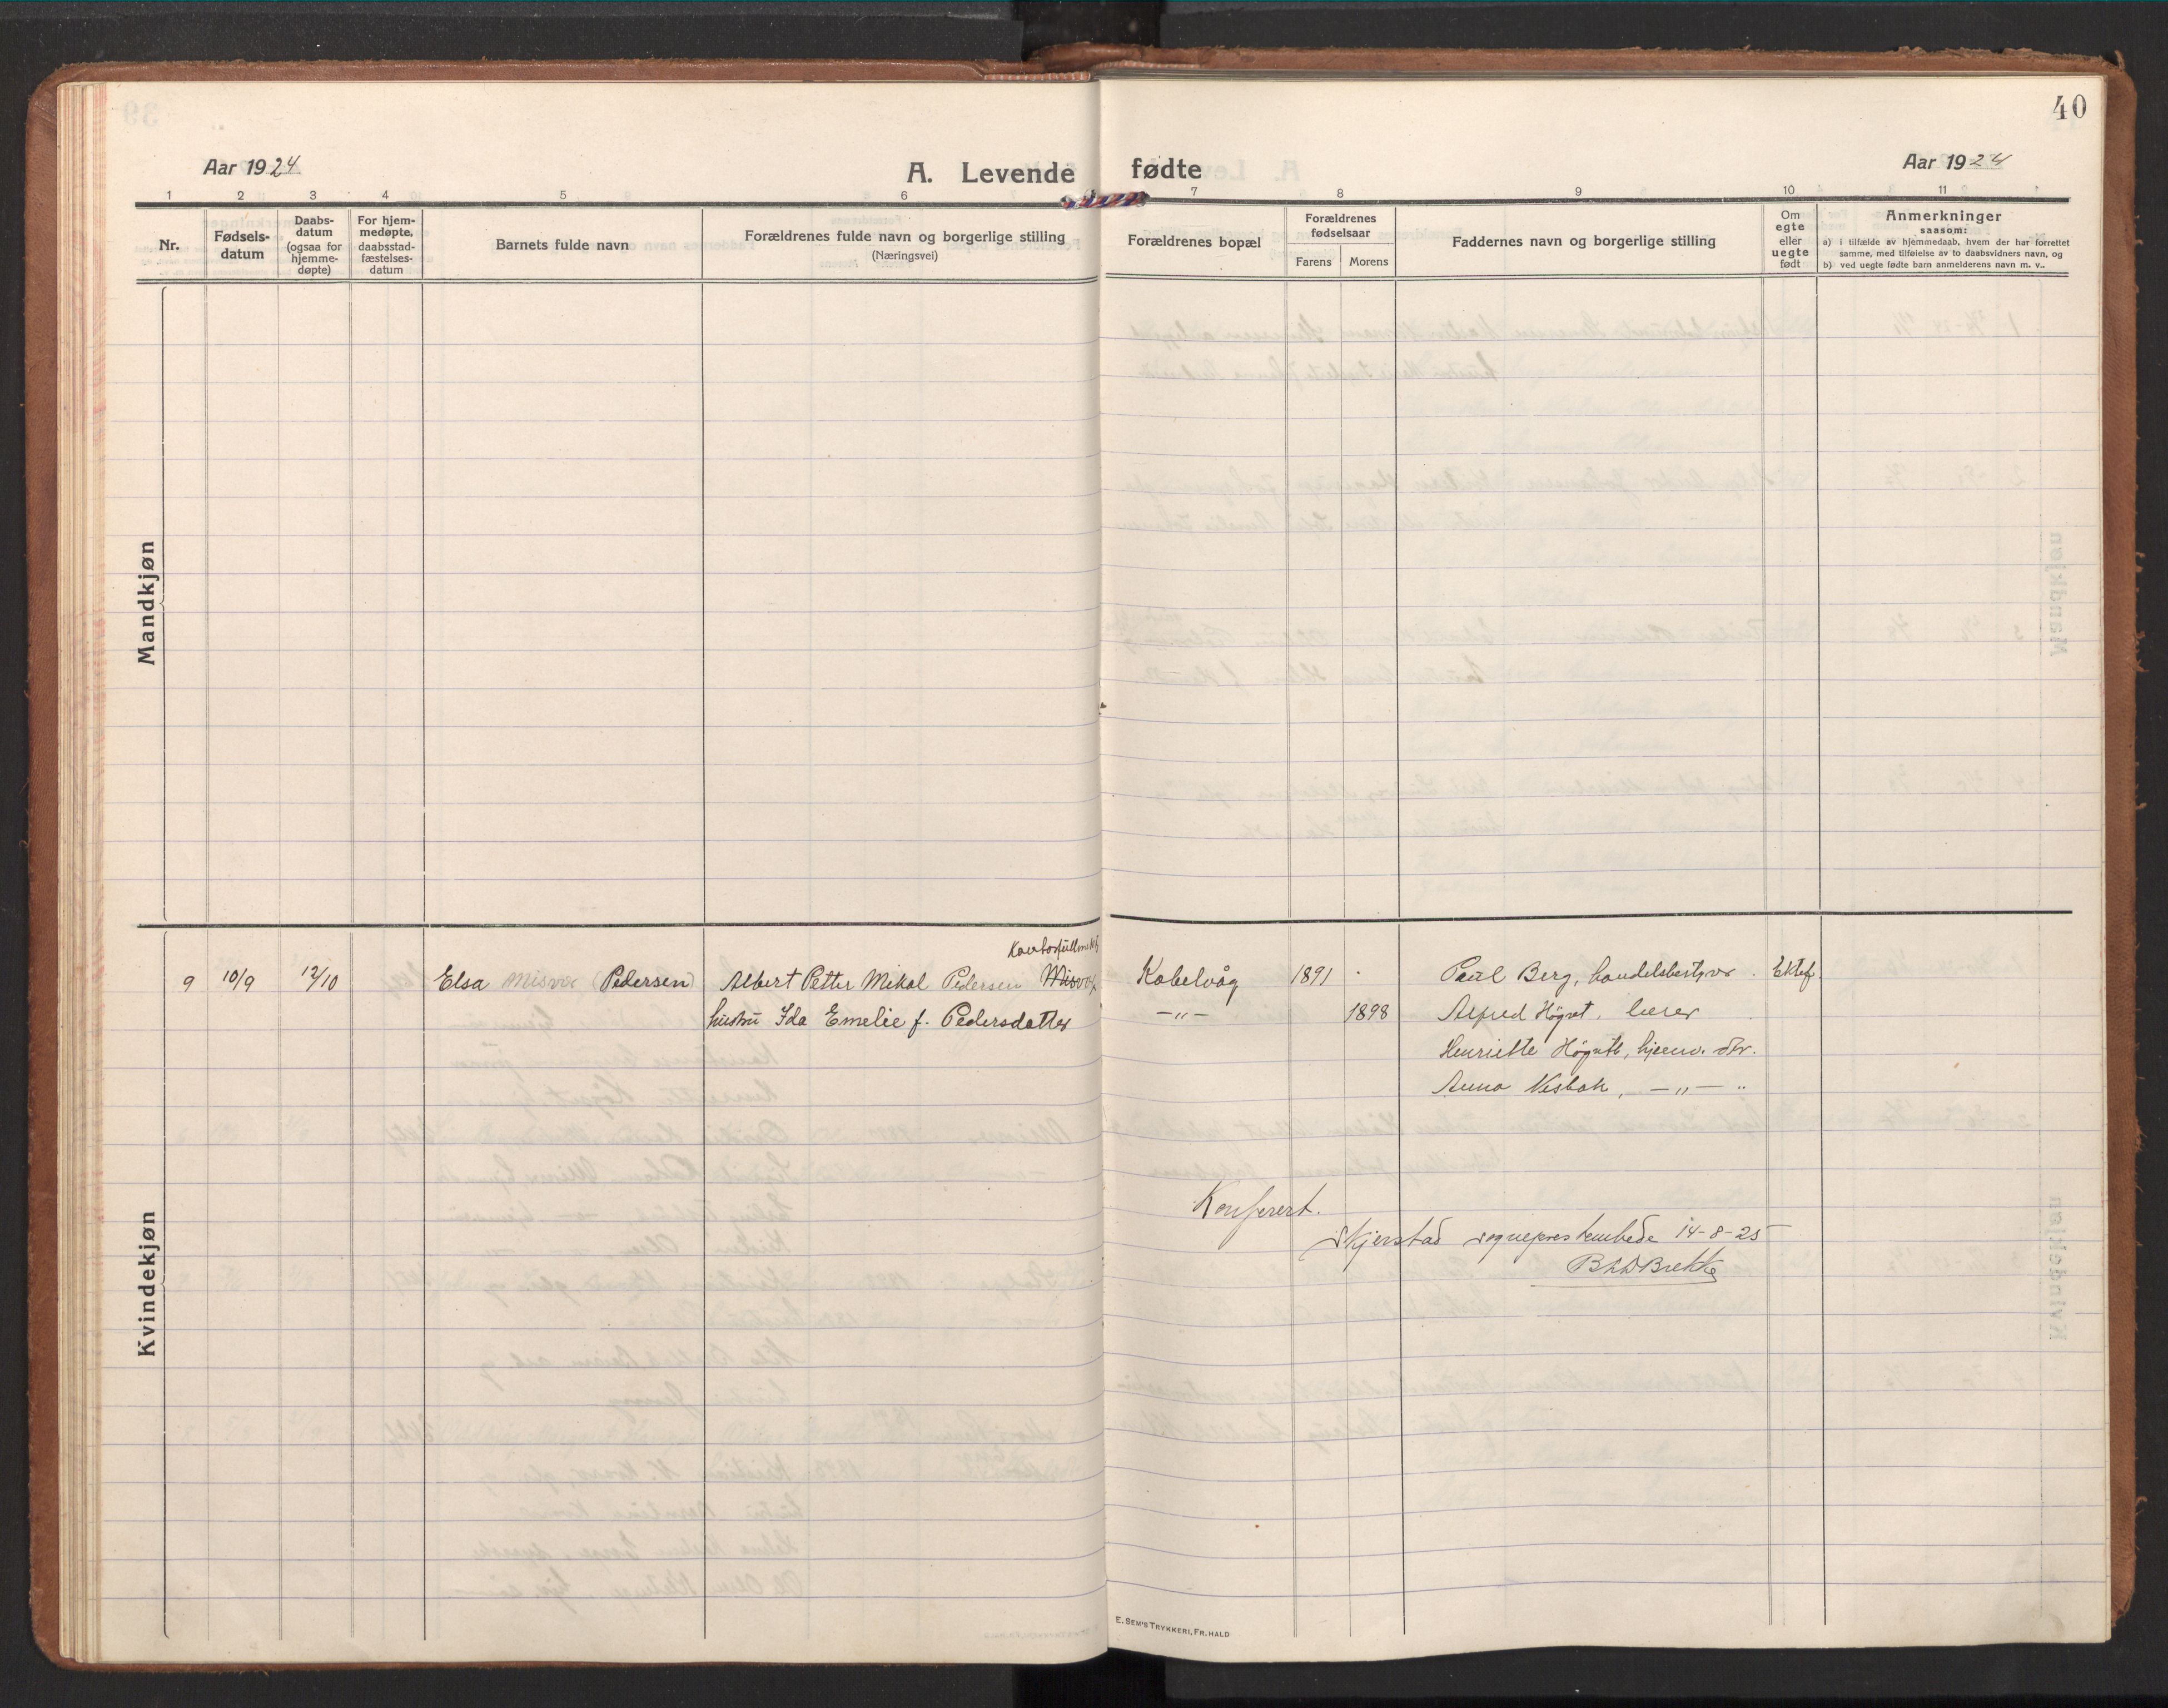 40
Aar 1924
A. Levende
fødte
Aar 1924
1 2 3 4 5 6 7 8 9 10 11
Nr.
Fødsels-
datum
Daabs-
datum
(ogsaa for
hjemme-
døpte)
For hjem-
medøpte,
daabsstad-
fæstelses-
datum
Barnets fulde navn
Forældrenes fulde navn og borgerlige stilling
(Næringsvei)
Forældrenes bopæl
Forældrenes
fødselsaar
Farens Morens
Faddernes navn og borgerlige stilling
Om
egte
eller
uegte
født
Anmerkninger
saasom:
a) i tilfælde av hjemmedaab, hvem der har forrettet
samme, med tilføielse av to daabsvidners navn, og
b) ved uegte fødte barn anmelderens navn m. v..
Mandkjøn
Kvindekjøn
9 10/9 12/10 Elsa Misvær (Pedersen) Albert Petter Mikal Pedersen Misvær Kabelvåg 1891 Paul Berg, handelsbestyrer Ektef.
hustru Ida Emelie f. Pedersdatter —"— 1898 Alfred Høgset, lærer
Henriette Høgset, hjemv. dtr.
Anna Vesbak, —"—
Konferert.
Skjerstad sogneprestembede 14-8-25
Brekke
E. SEM'S TRYKKERI, FR. HALD